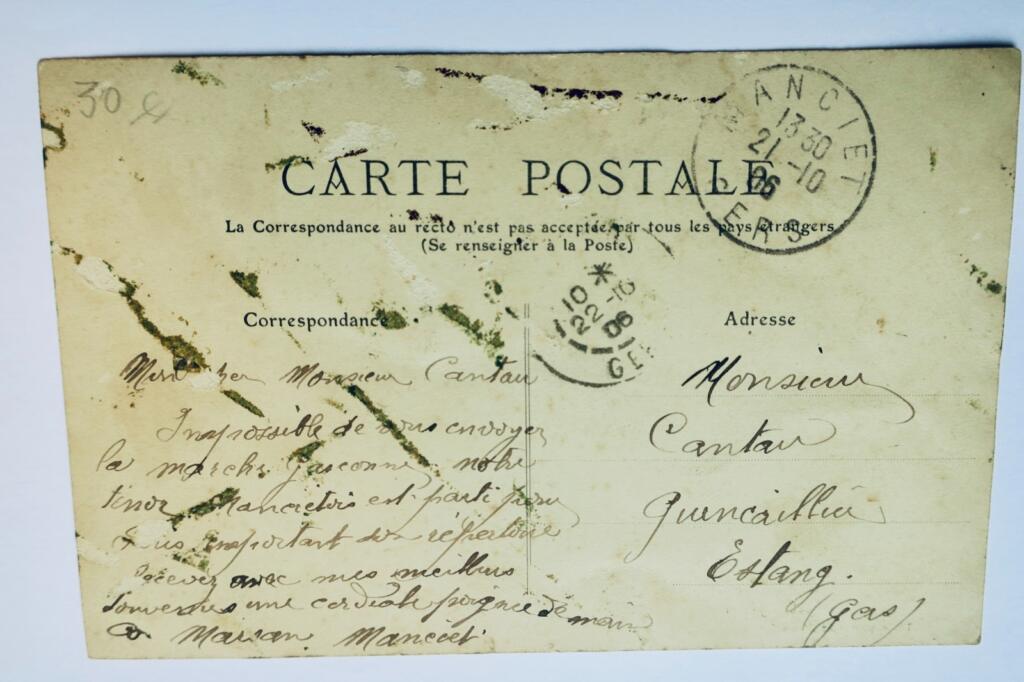 30
MANCIET
13 30
21-10
06
GERS
CARTE POSTALE
La Correspondance au recto n'est pas acceptée par tous les pays étrangers
(Se renseigner à la Poste)
10 *
22-10
06
GE
Correspondance
Mon cher Monsieur Cantau
Impossible de vous envoyer
la marche gasconne, notre
tenor Mancietois est parti pour
emportant son répertoire
Recevez avec mes meilleurs
souvenirs une cordiale poignée de main
Manciet
Adresse
Monsieur
Cantau
Quincaillier
Estang.
(Gers)